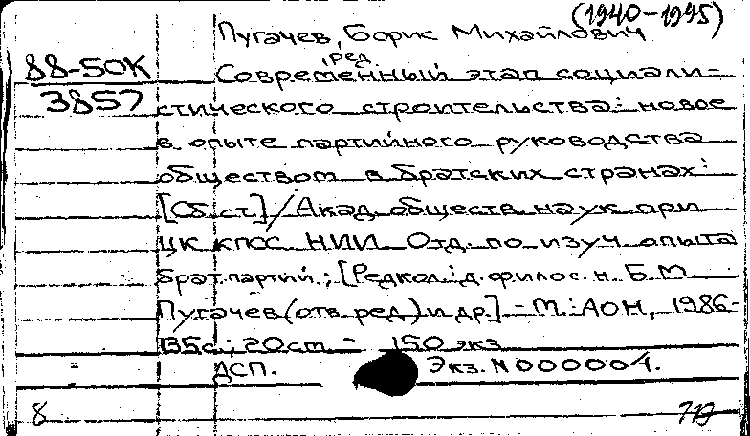 (1940-1995)
Пугачев, Борис Михайлович
ред.
88-50К Современный этап социали-
3857 стического строительства: новое
в опыте партийного руководства
обществом в братских странах:
[Сб. ст.] / Акад. обществ. наук при
ЦК КПСС. НИИ. Отд. по изуч. опыта
брат. партий; [Редкол.: д. филос. н. Б.М.
Пугачев (отв. ред.) и др.]. - М.: АОН, 1986-
135с.; 20см - 150 экз
ДСП. Экз. N 000004.
8